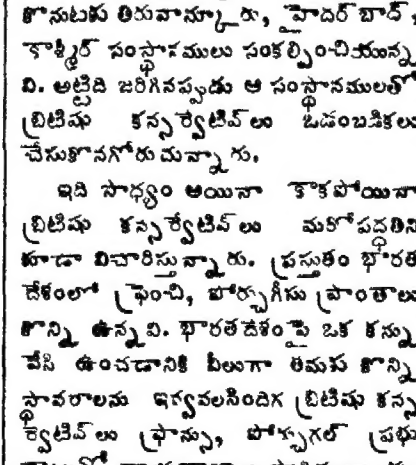 కొనుటకు తిరువాన్కూరు, హైదర్ బాద్,
కాశ్మీర్ సంస్థానములు సంకల్పించియున్న
వి. అట్టిది జరిగినప్పుడు ఆ సంస్థానములతో
బ్రిటిషు కన్సర్వేటివ్ లు ఒడంబడికలు
చేసుకొనగోరుచున్నారు.
ఇది సాధ్యం అయినా కాకపోయినా
బ్రిటిషు కన్సర్వేటివ్ లు మరోపద్ధతిని
కూడా విచారిస్తున్నారు. ప్రస్తుతం భారత
దేశంలో ఫ్రెంచి, పోర్చుగీసు ప్రాంతాలు
కొన్ని ఉన్నవి. భారతదేశంపై ఒక కన్ను
వేసి ఉంచడానికి వీలుగా తమకు కొన్ని
స్థావరాలను ఇవ్వవలసిందిగ బ్రిటిషు కన్స
ర్వేటివ్ లు ఫ్రాన్సు, పోర్చుగల్ ప్రభు